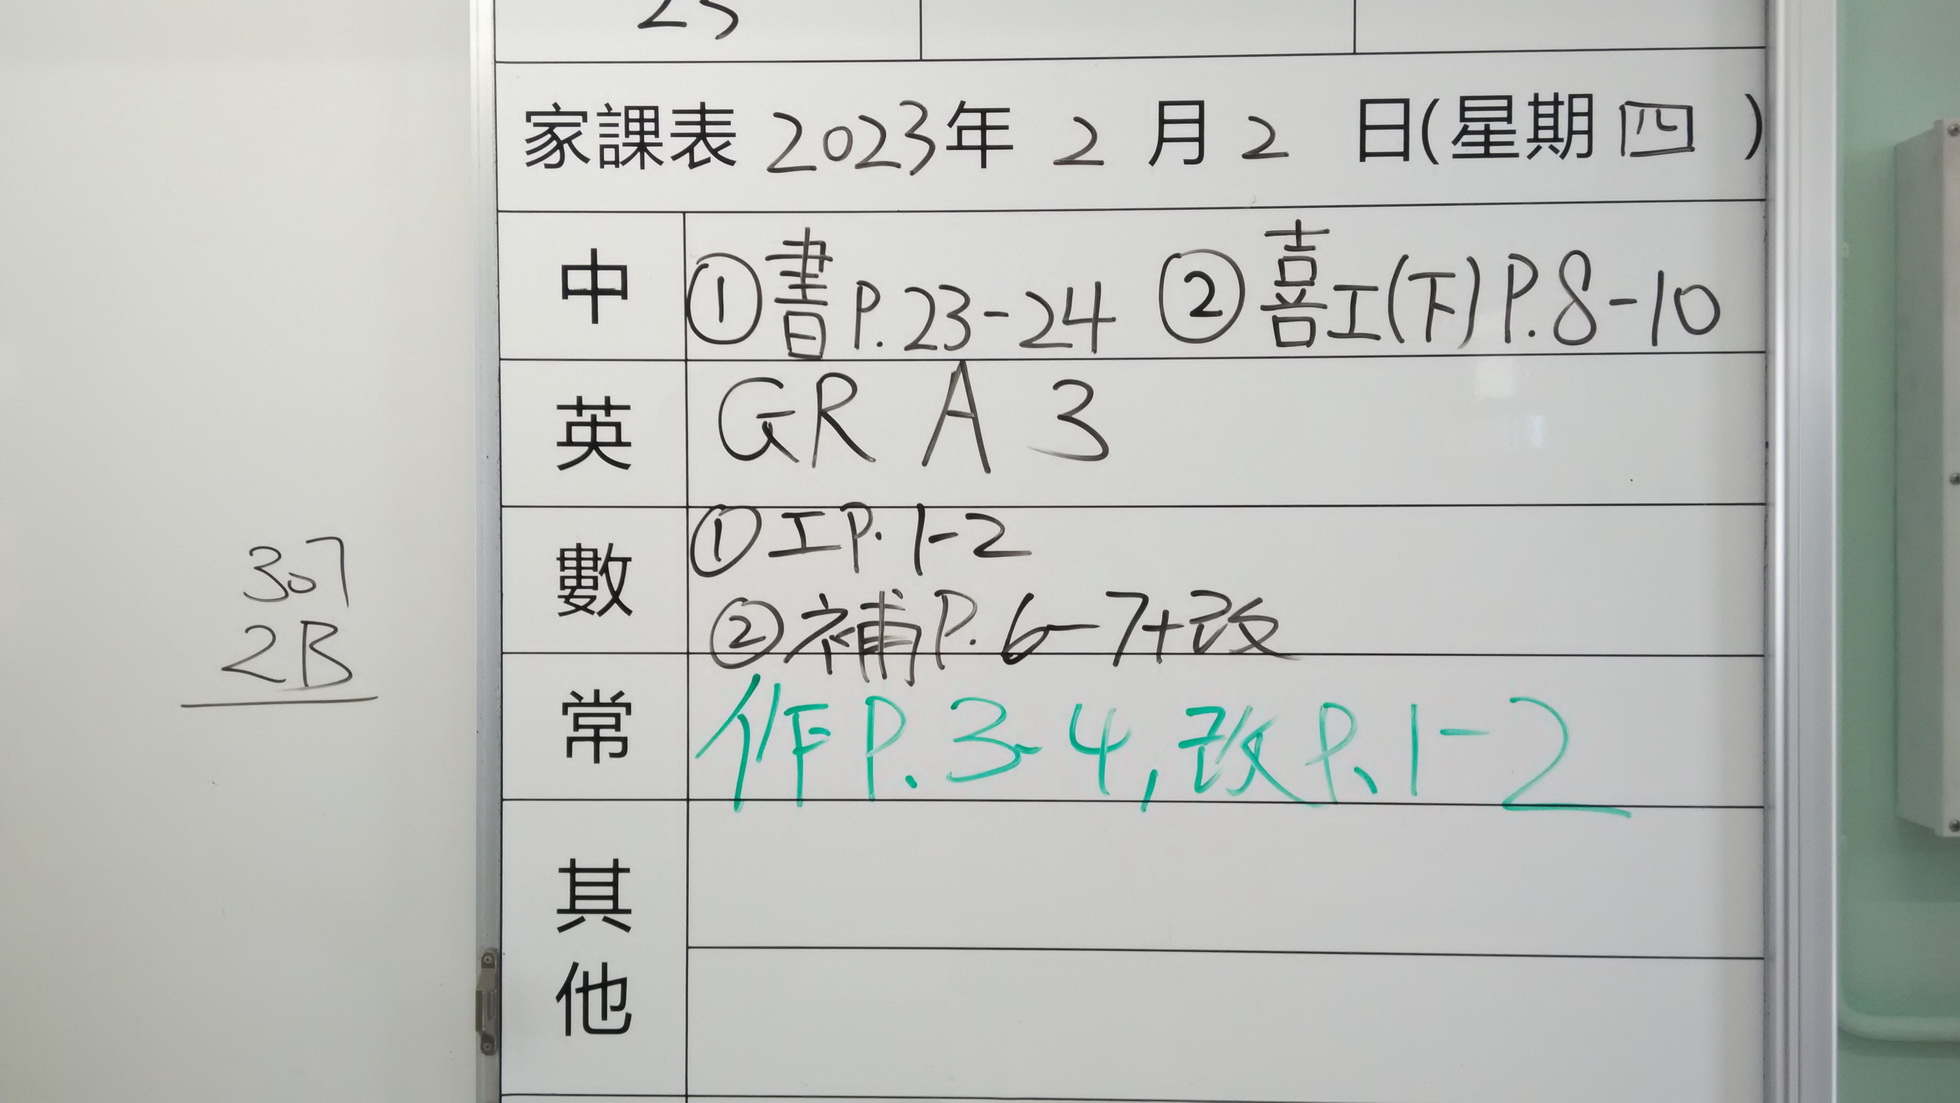 25
家課表 2023年 2 月 2 日(星期 四 )
中 ①書P.23-24 ②喜工(下)P.8-10
英 GR A 3
數 ①工P.1-2
②補P.6-7+改
常 作P.3-4,改P.1-2
其他
307
2B